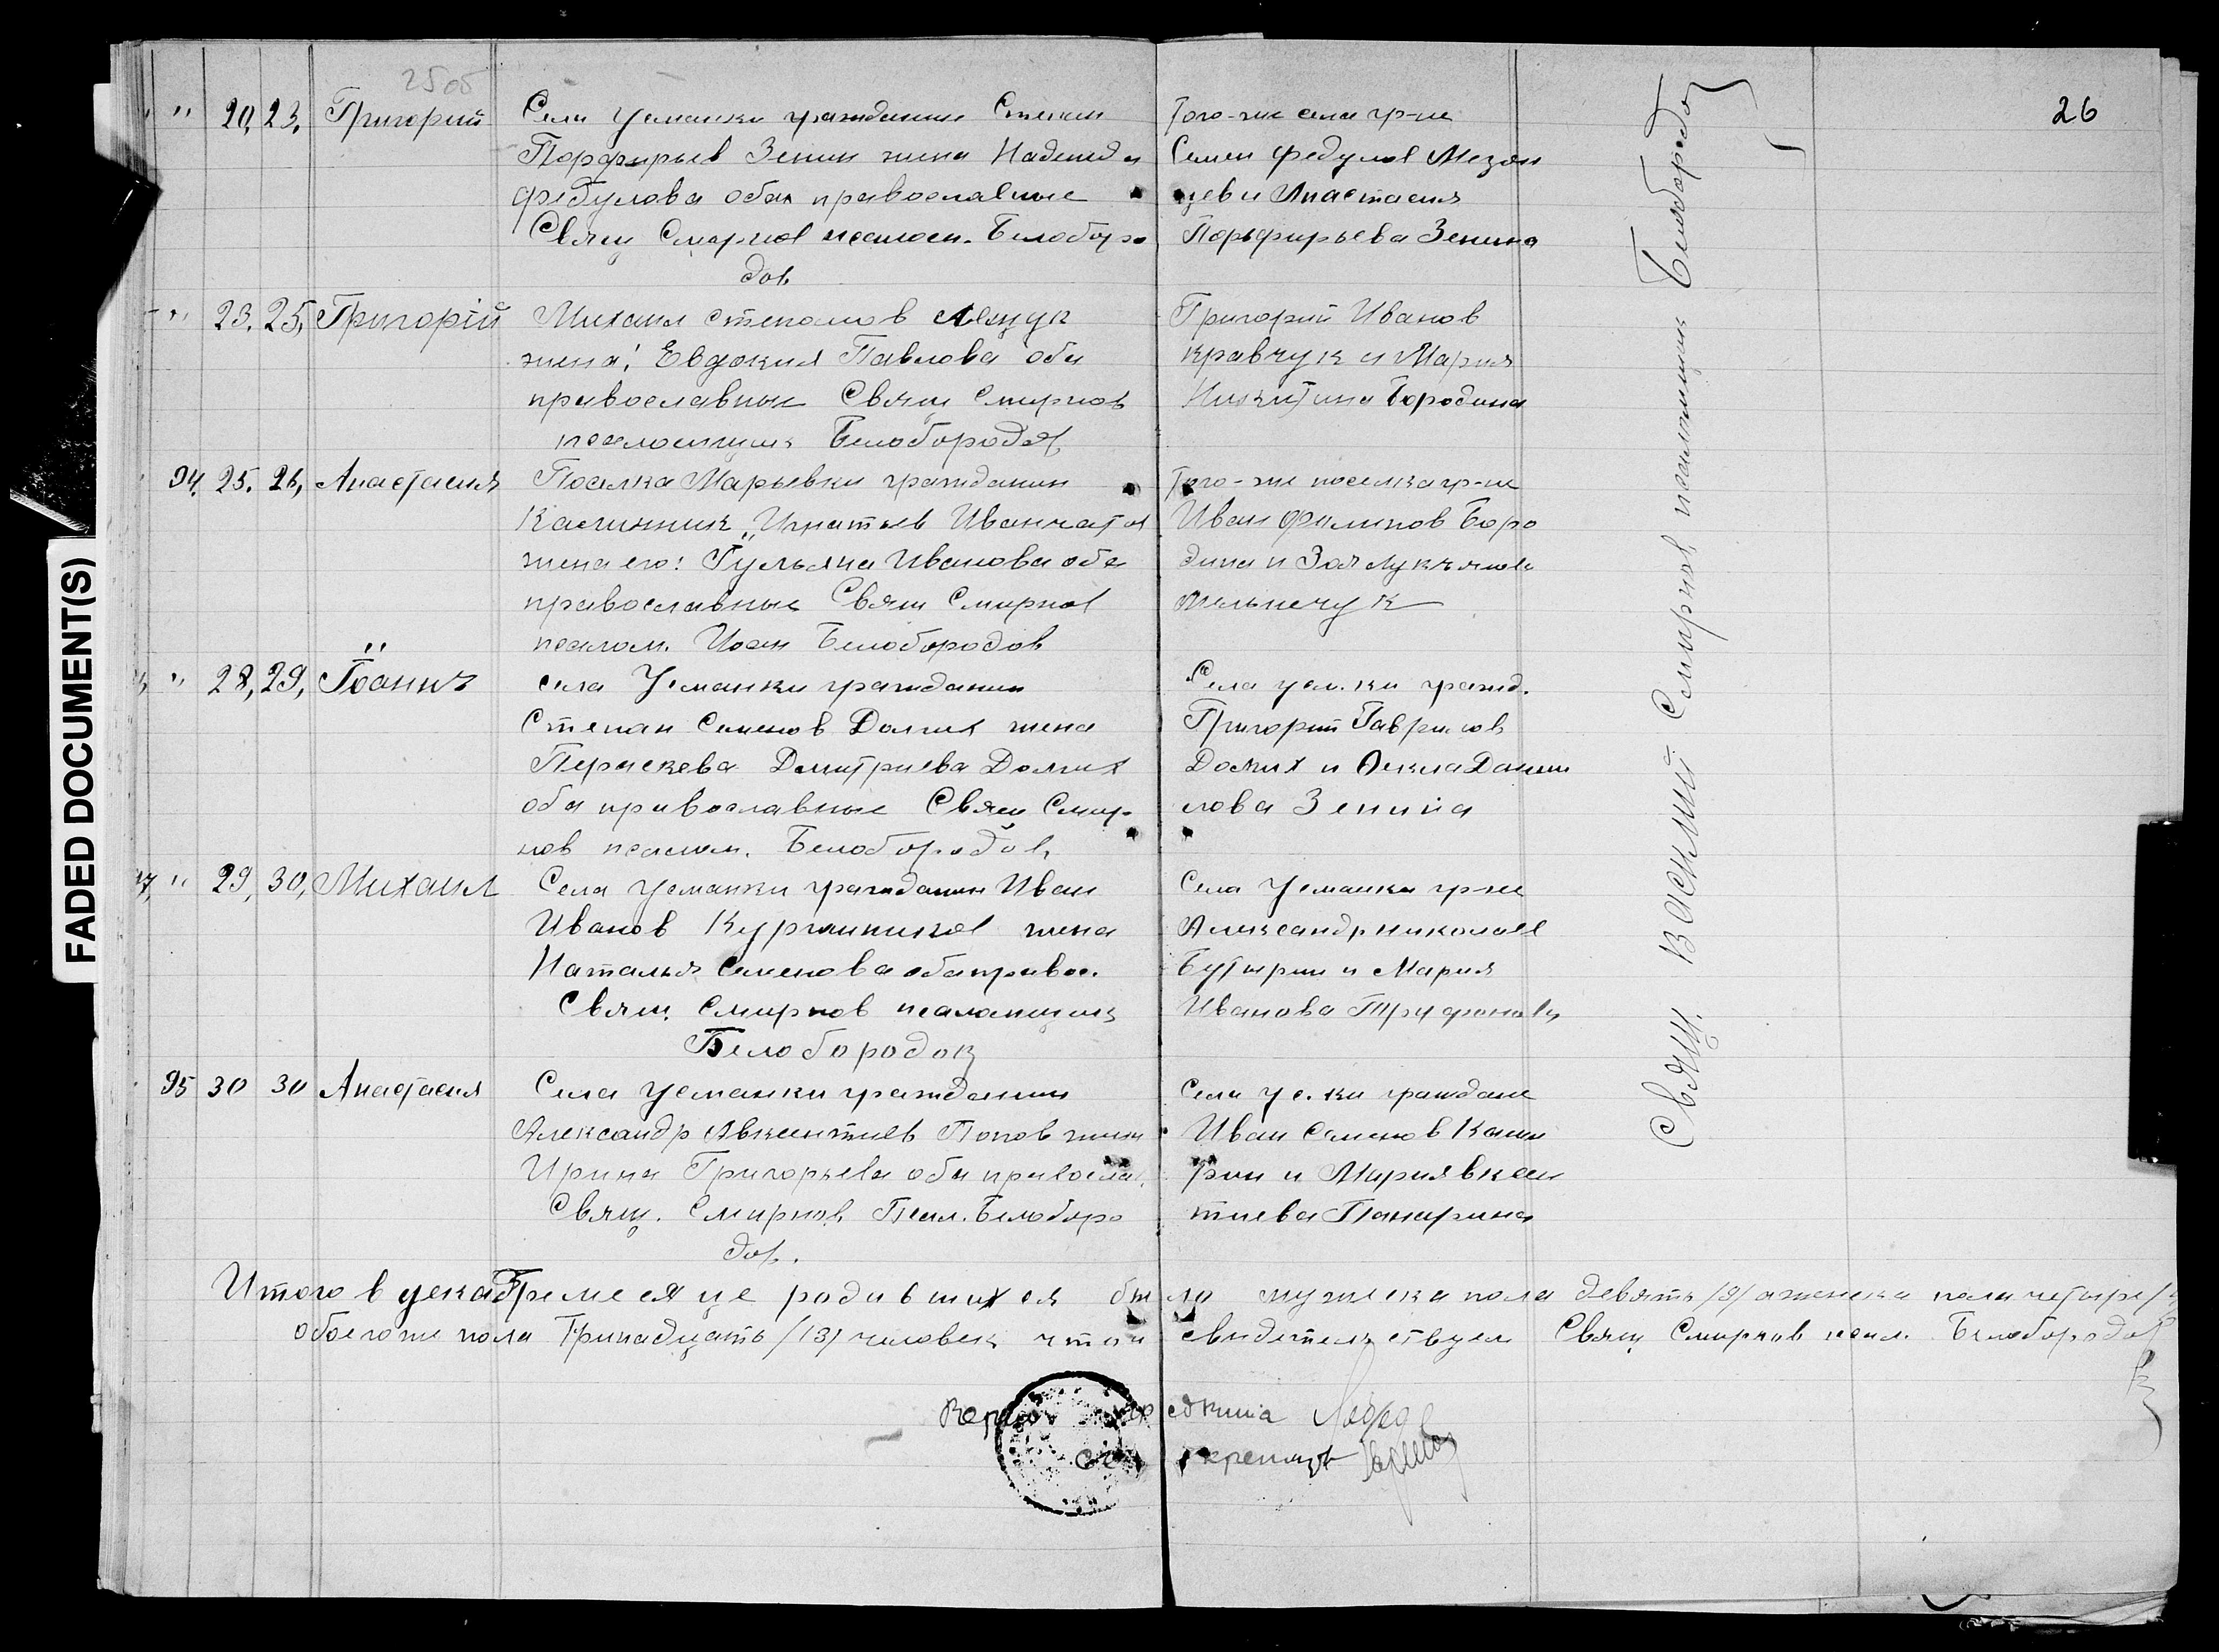 25об
26
" 20, 23, Григорий Села Усманки гражданин Степан
Порфирьев Зенин жена Надежда
Федулова оба православные
Свящ Смирнов псаломщ. Белоборо
дов
Того-же села гр-не
Семен Федулов Мезен
цев и Анастасия
Порьфирьева Зенина
" 23, 25, Григорій Михаил Степанов
жена: Евдокия Павлова оба
православные Свящ Смирнов
псаломщик Белобородов
Григорий Иванов
Кравчук и Мария
Никитина Бородина
94, 25. 26, Анастасия Поселка Марьевки гражданин
Игнатьев Иванчатов
жена его: Гульяна Иванова оба
православные Свящ Смирнов
псалом. Иоан Белобородов
Того-же поселка гр-не
Иван Филипов Боро
дина и Зоя Лукъянова
Мельнечук
" 28, 29, Іоаннъ села Усманки гражданин
Степан Семенов Долгих жена
Пераскева Дмитриева Долгих
оба православные Свящ Смир-
нов псалом. Белобородов
Села Усм.ки гражд.
Григорий Гаврилов
Долгих и Фекла Дани
лова Зенина
" 29, 30, Михаил Села Усманки гражданин Иван
Иванов жена
Наталья Семенова оба правос.
Свящ. Смирнов псаломщик
Белобородов
Села Усманки гр-не
Александр Николаев
Бутырин и Мария
Иванова Труфанова
95 30 30 Анастасия Села Усманки гражданин
Александр Авксентиев Попов жена
Ирина Григорьева оба православ.
Свящ. Смирнов Псал. Белоборо
дов.
Села Ус.ки граждане
Иван Семенов Каши
рин и Мария вксен
тиева Панарина
Свящ. Василий Смирнов псаломщик Белобородов
Итого в декабре месяце родившихся было мужска пола девять /9/ а женска пола четыре /4/
обоего же пола Тринадцать /13/ человек что и свидетельствуем Свящ Смирнов псал. Белобородов
FADED DOCUMENT(S)